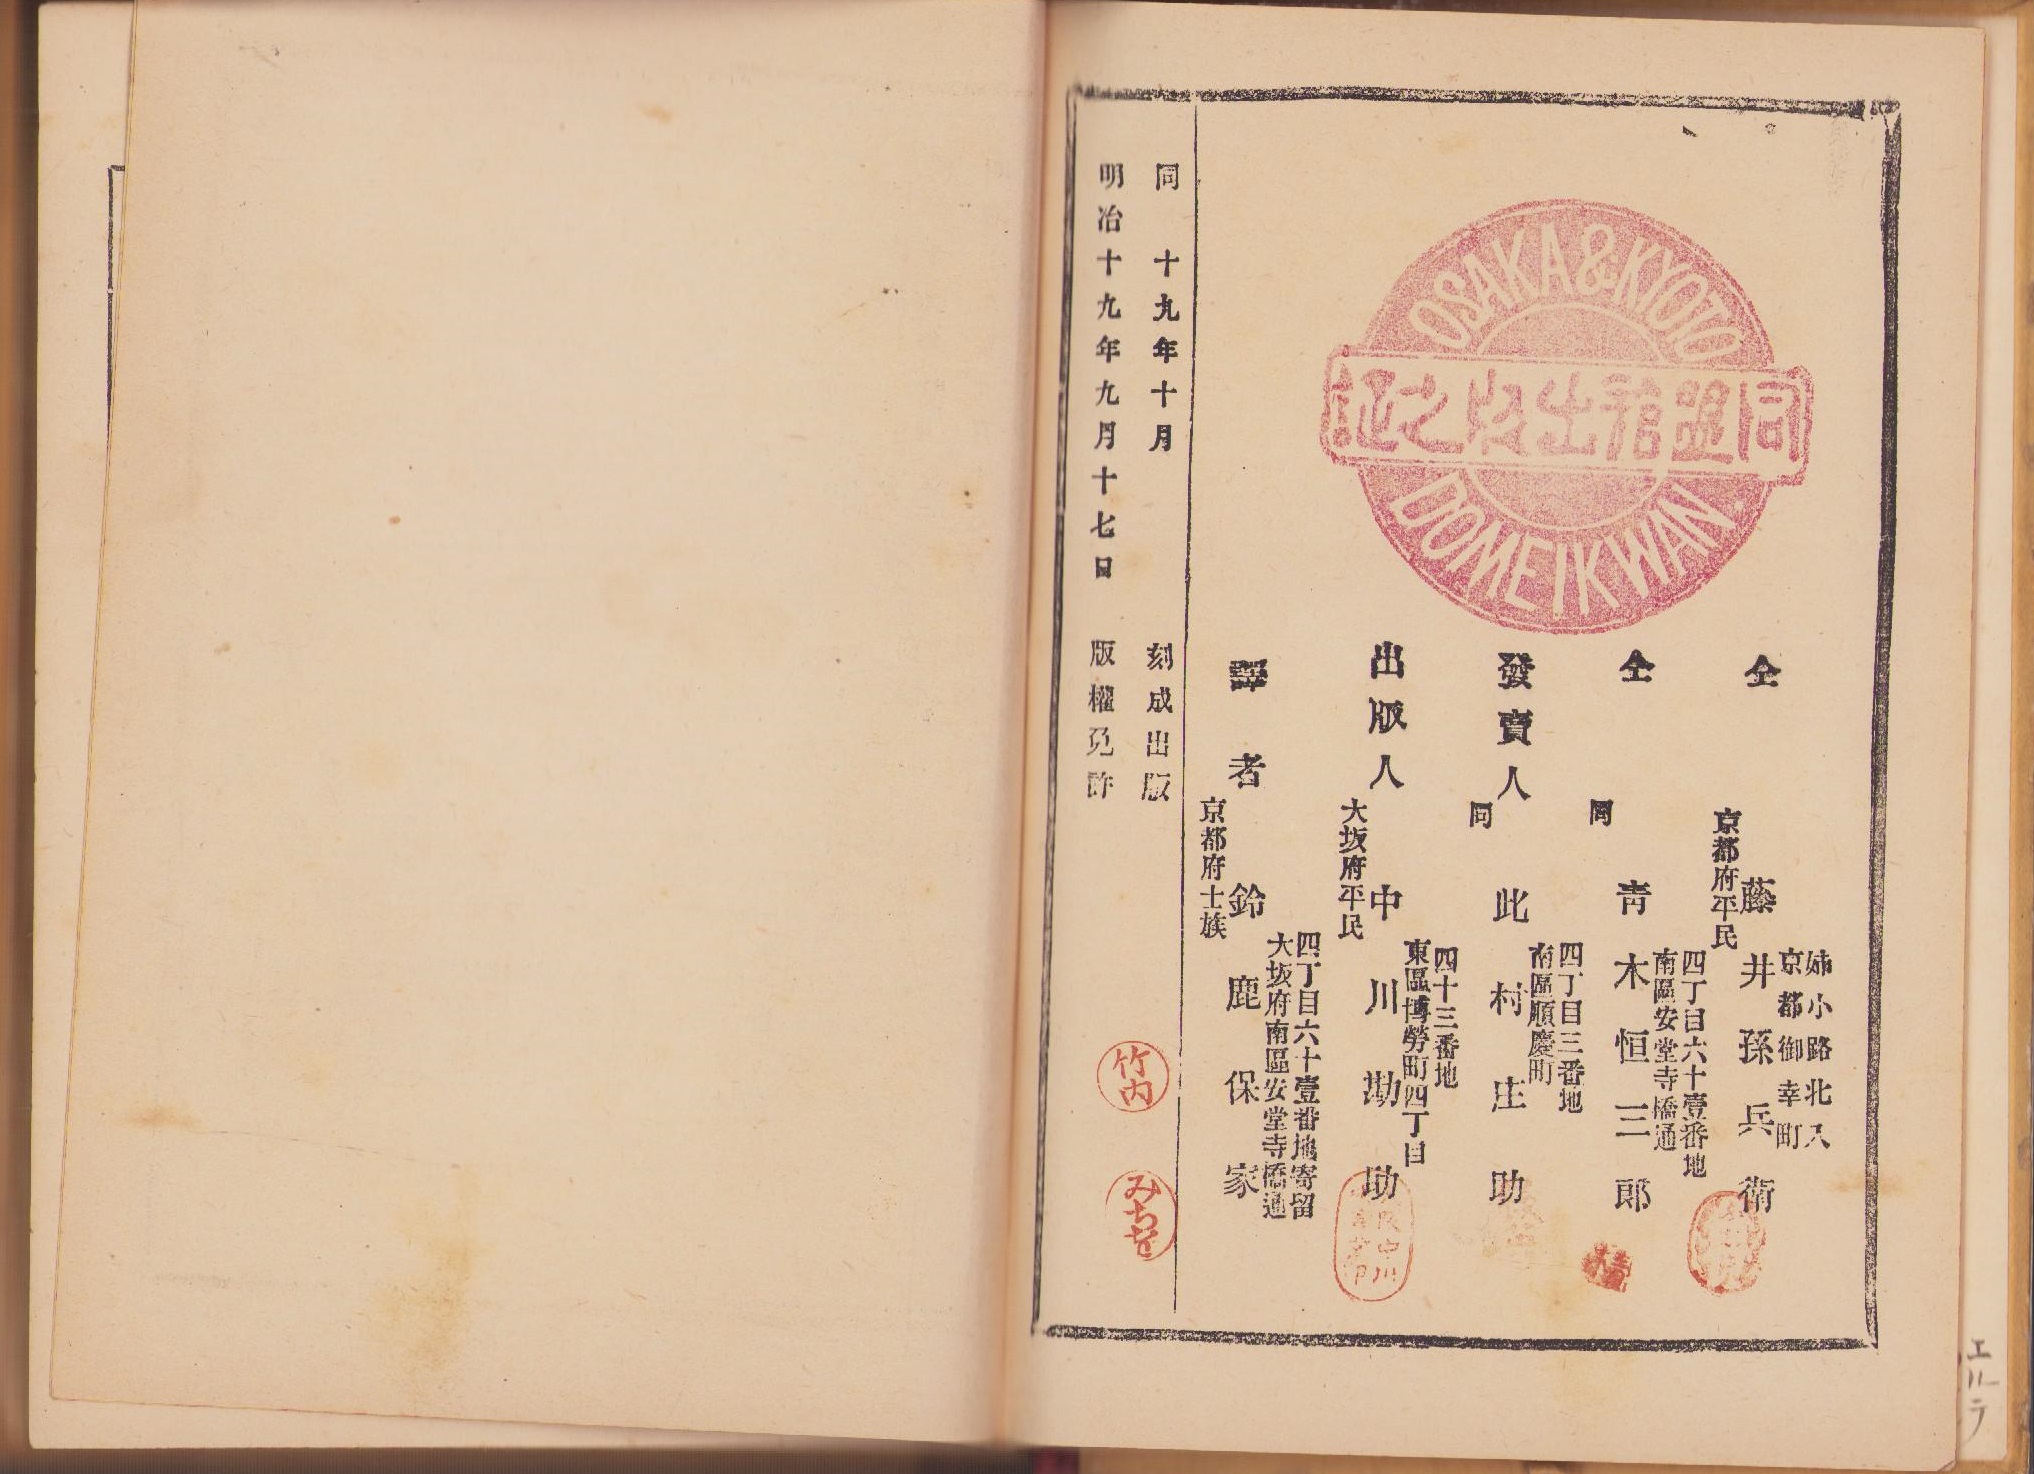 OSAKA & KYOTO
同盟館出版之証
DOMEIKWAN
仝
京都府平民
藤井孫兵衛
京都御幸町
姉小路北入
仝
同
青木恒三郎
南區安堂寺橋通
四丁目六十壹番地
發賣人
同
此村庄助
南區順慶町
四丁目三番地
出版人
大坂府平民
中川勘助
東區博勞町四丁目
四十三番地
譯者
京都府士族
鈴鹿保家
大坂府南區安堂寺橋通
四丁目六十壹番地寄留
同 十九年十月 刻成出版
明治十九年九月十七日 版權免許
竹内
みちを
エルテ